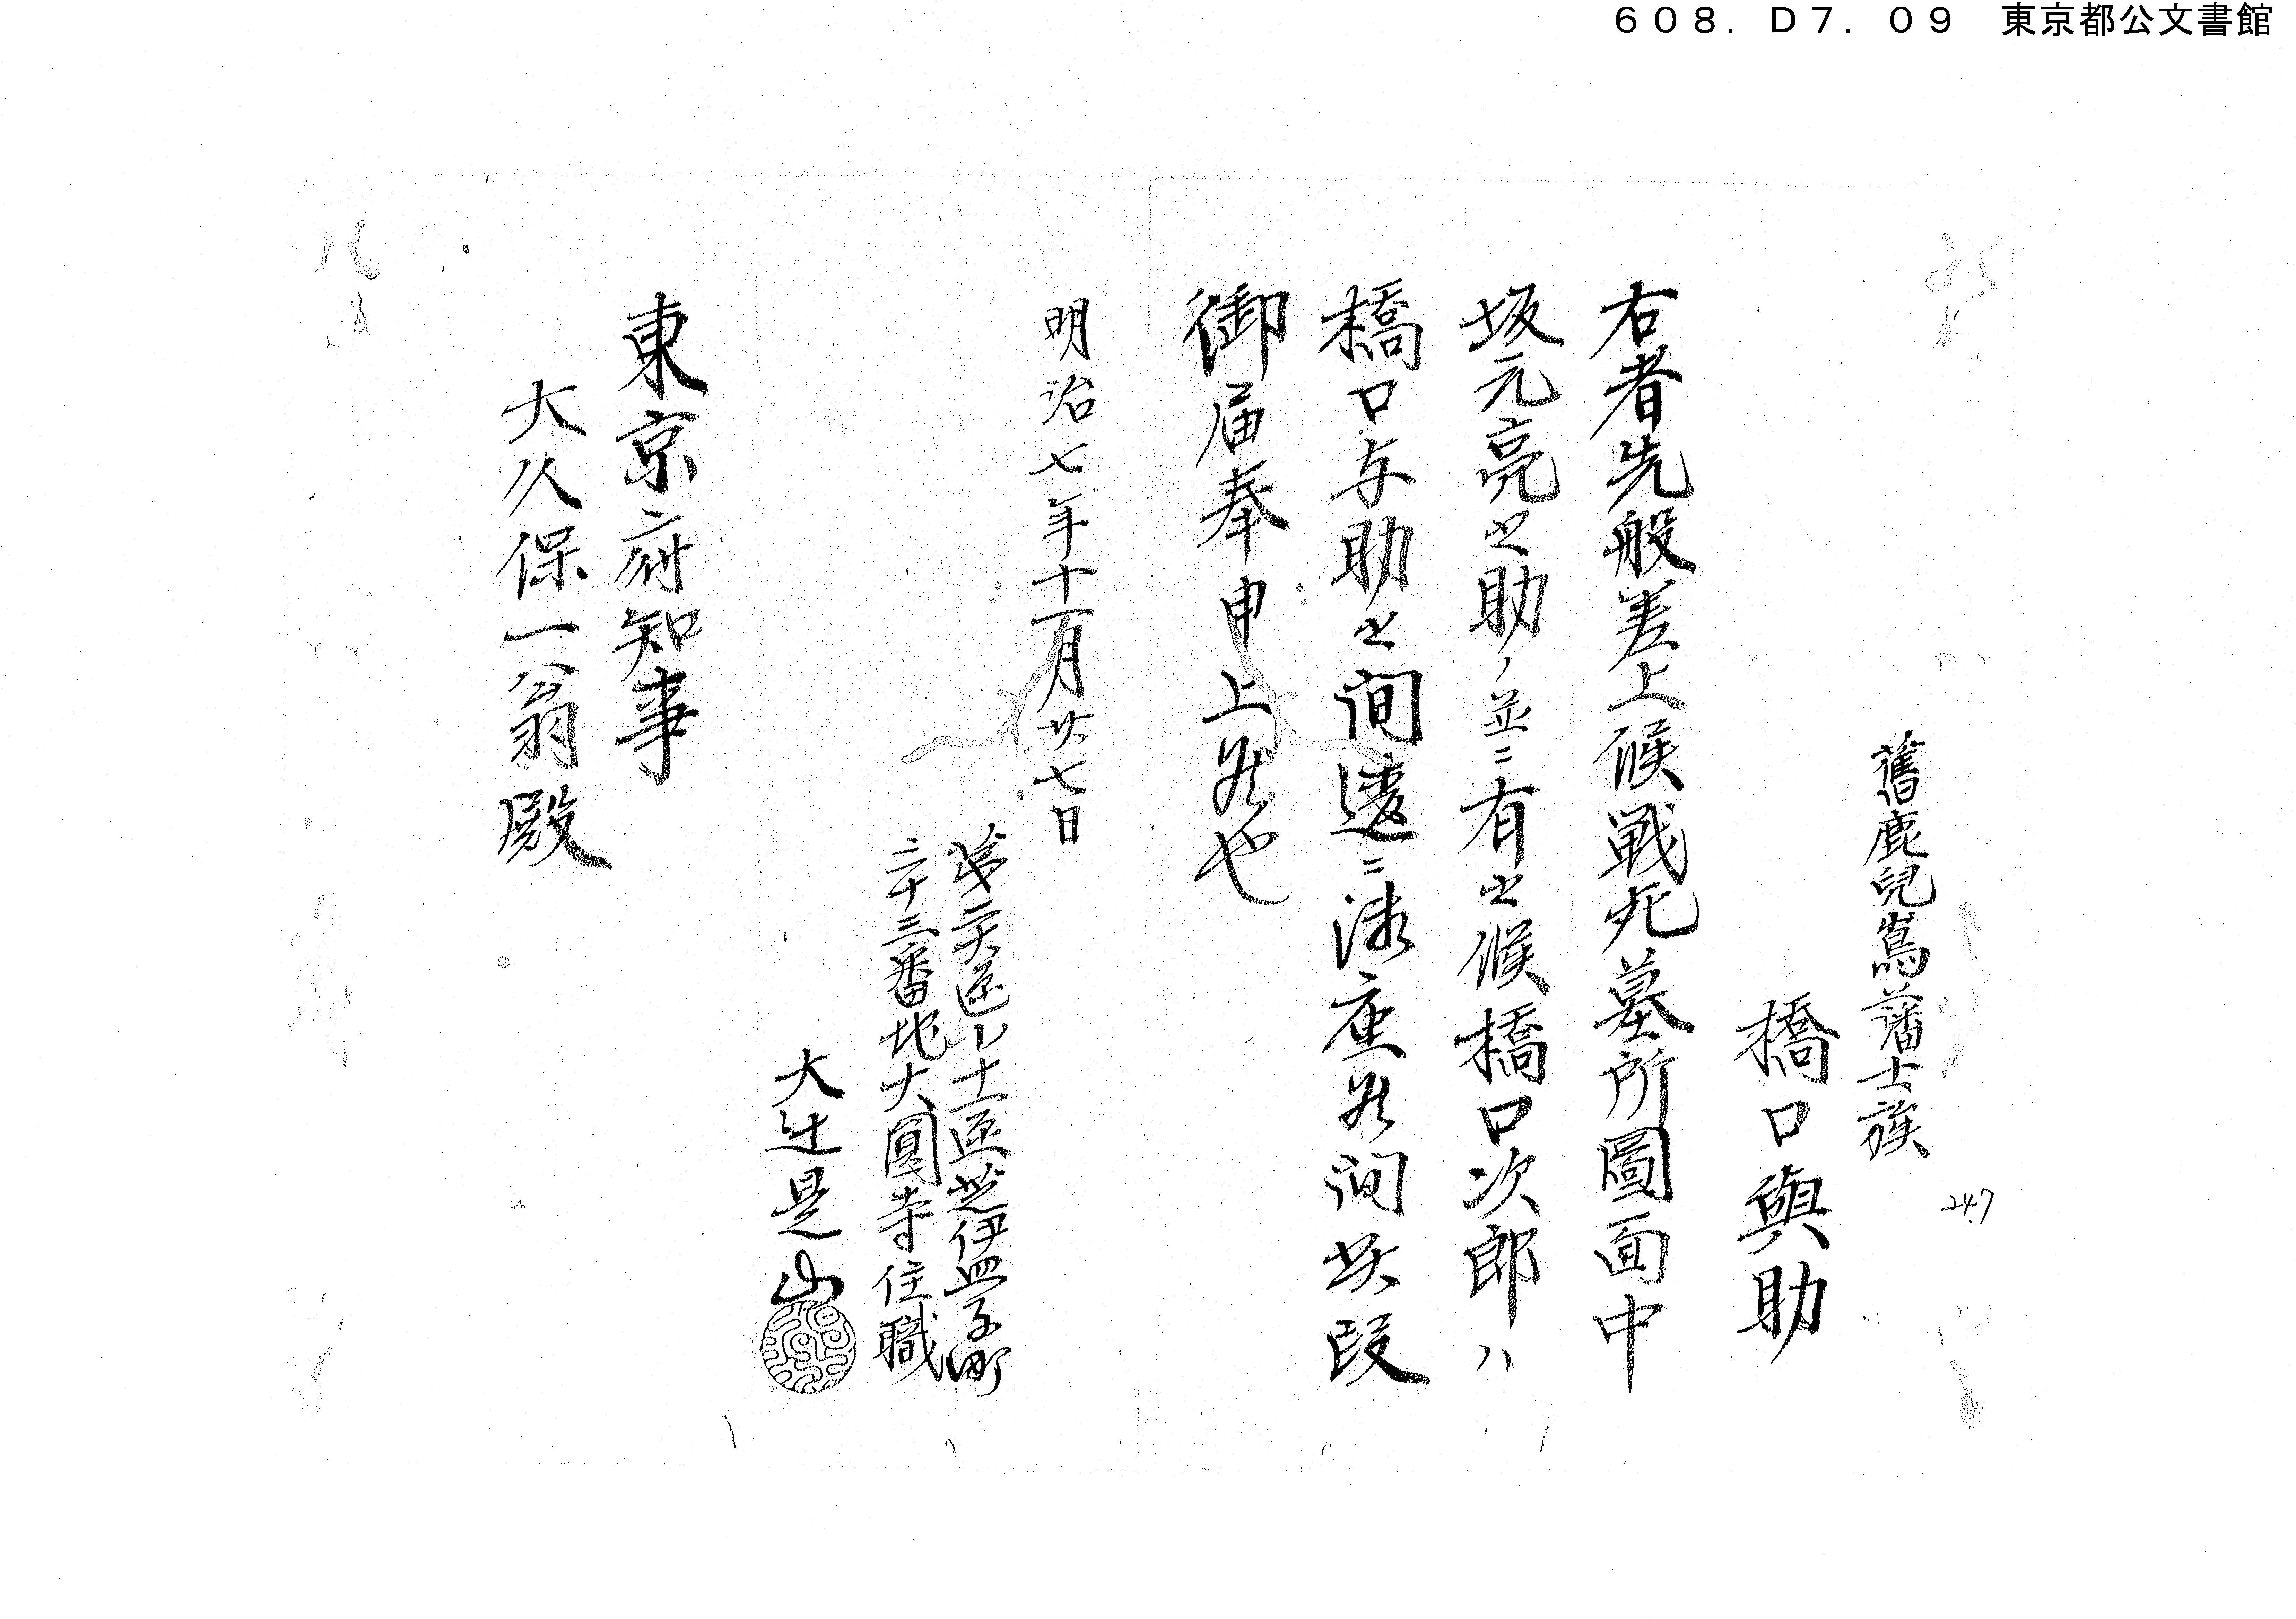 608. D7. 09 東京都公文書館
舊鹿兒嶌藩士族
橋口與助
247
右者先般差上候戦死墓所圖面中
坂元亮之助ノ並ニ有之候橋口次郎ハ
橋口与助之間違ニ御座候間此段
御届奉申上候也
明治七年十一月廿七日
第二大區小十一區芝伊皿子町
二十三番地大圓寺住職
大辻是山
東京府知事
大久保一翁殿